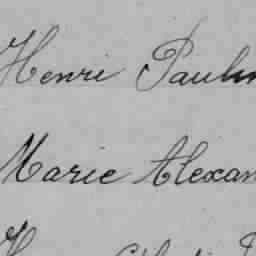 Henri Paulin
Marie Alexan